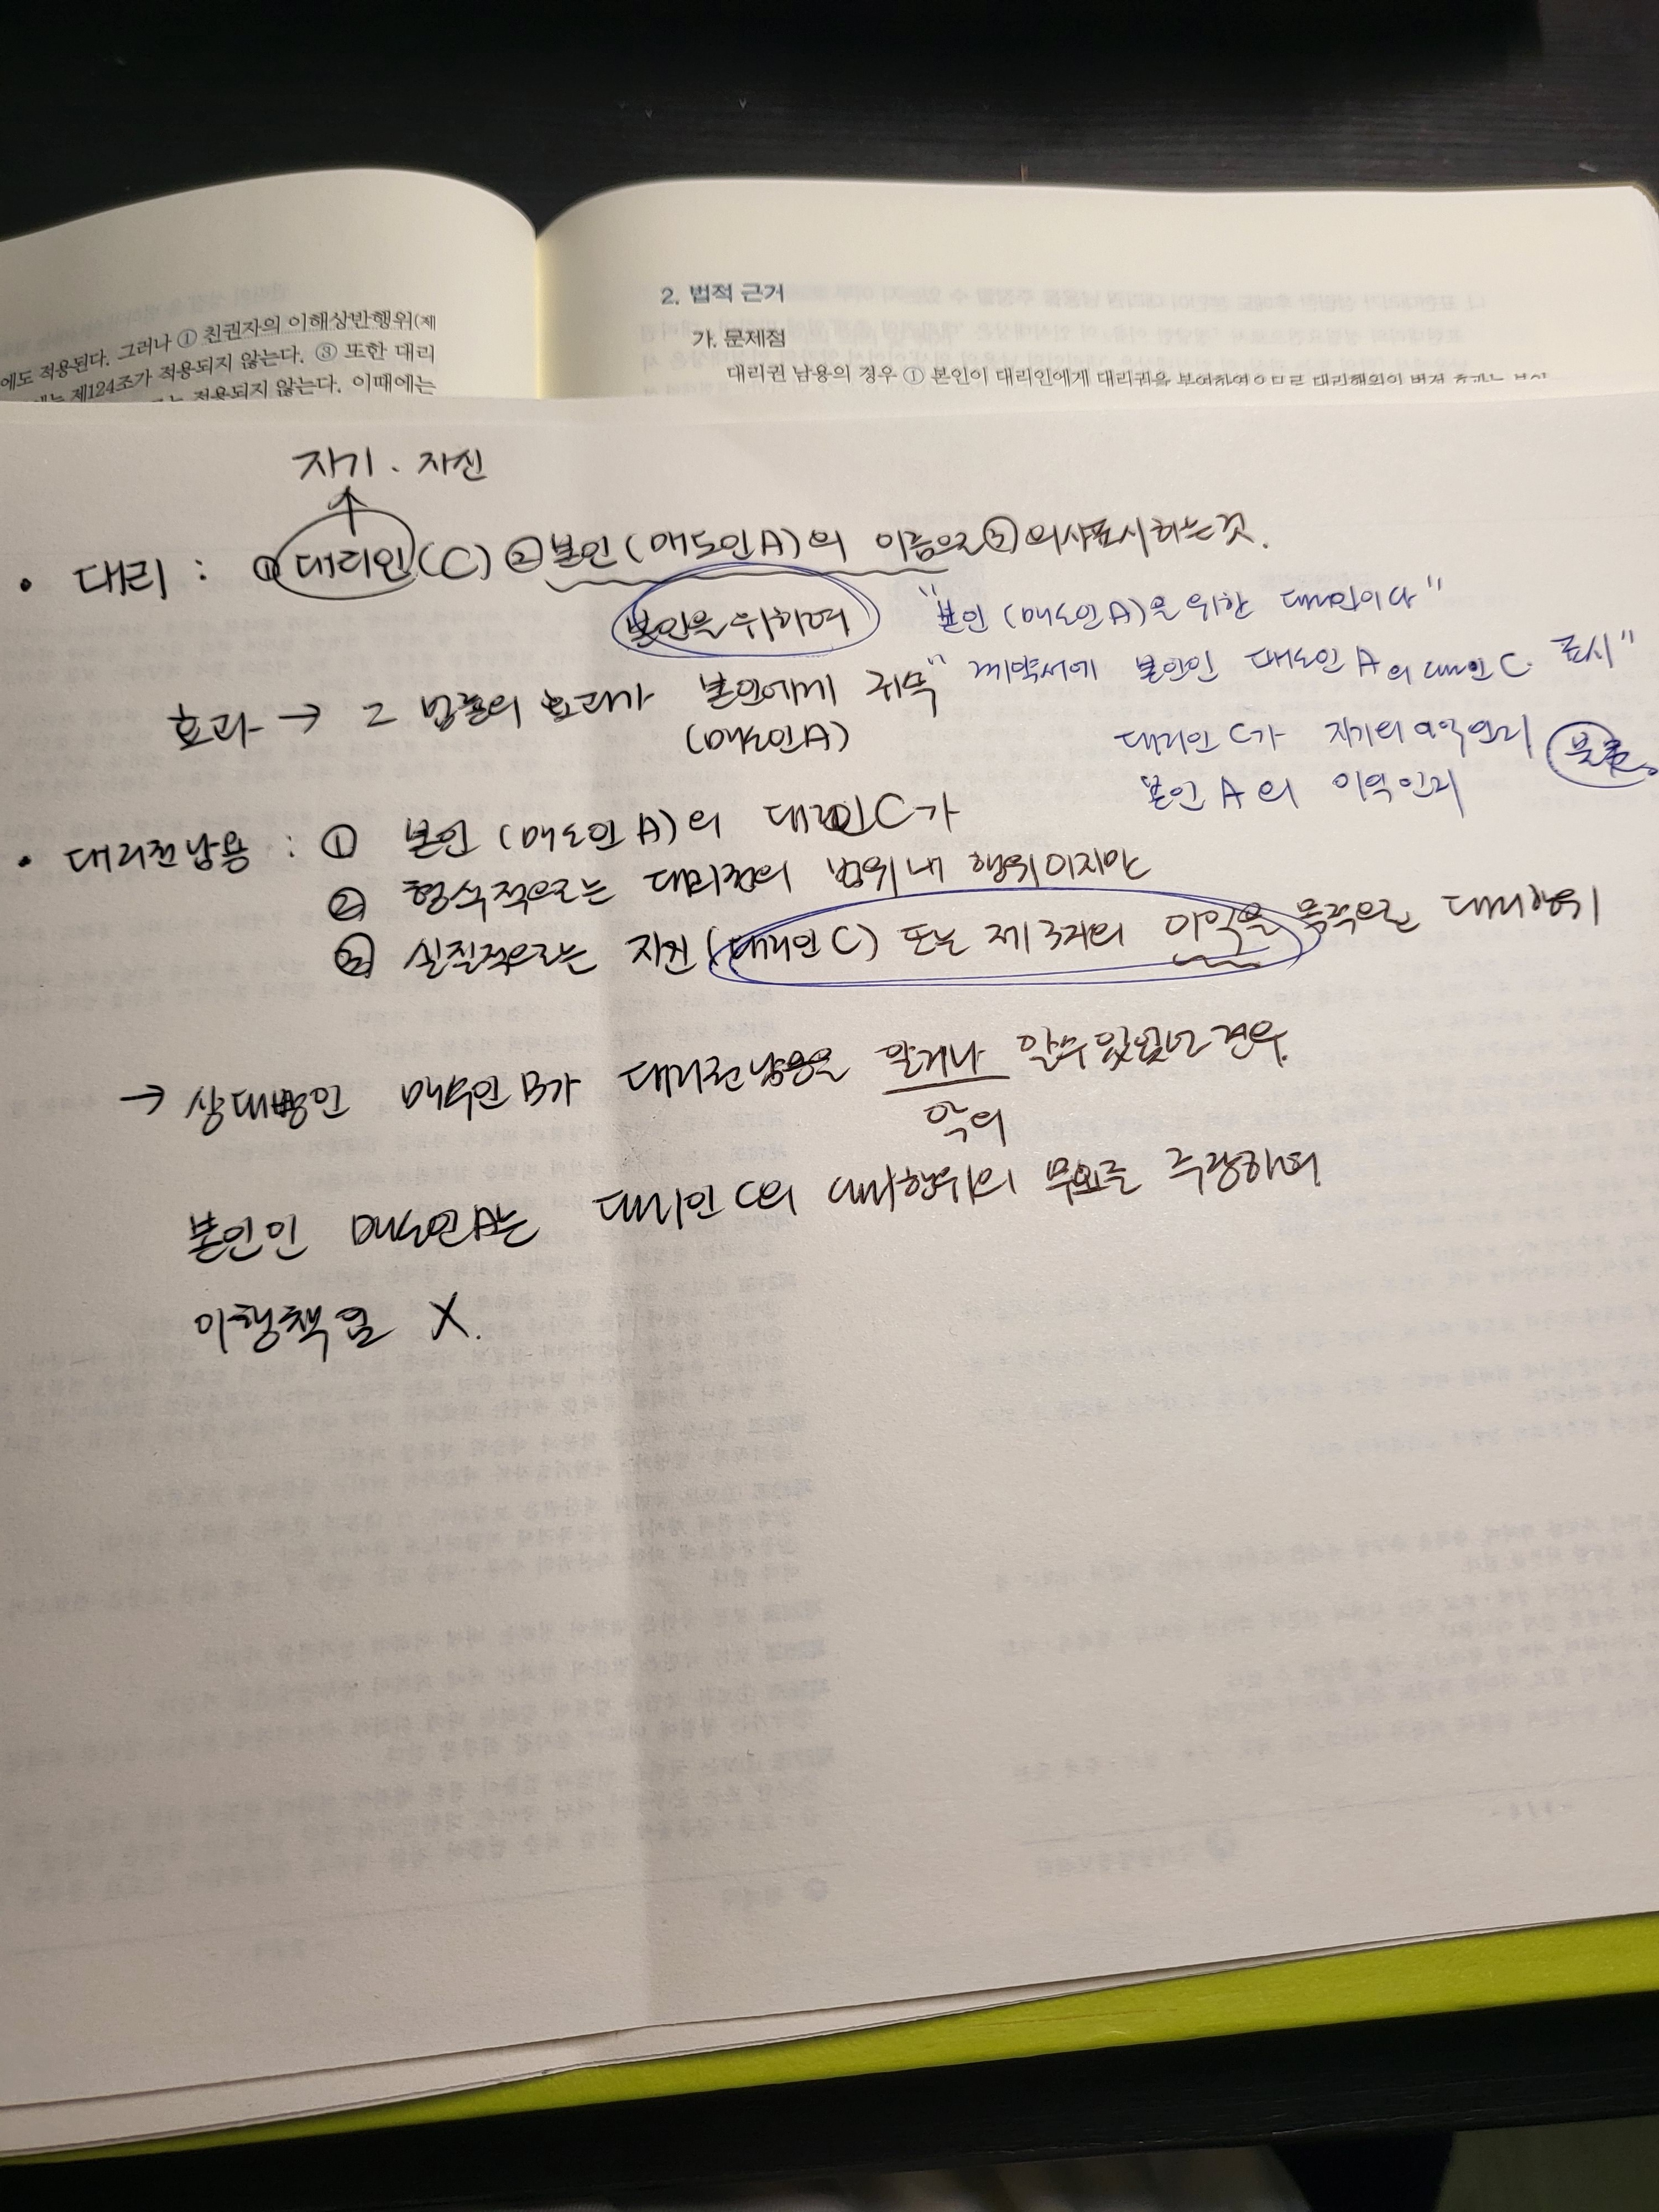 에도 적용된다. 그러나 ① 친권자의 이해상반행위(제
에는 제124조가 적용되지 않는다. ③ 또한 대리
적용되지 않는다. 이때에는
2. 법적 근거
가. 문제점
대리권 남용의 경우 ① 본인이 대리인에게 대리권을 부여하였으므로 대리행위의 법적 효과는
자기 · 자신
• 대리 : ① 대리인(C) ② 본인(매도인A)의 이름으로 ③ 의사표시하는 것.
본인을 위하여 "본인(매도인A)을 위한 대리인이다"
"계약서에 본인인 매도인A의 대리인C 표시"
효과 → 그 법률의 효과가 본인에게 귀속
(매도인A)
대리인 C가 자기의 이익인지
본인 A의 이익인지 불문.
• 대리권남용 : ① 본인(매도인A)의 대리인C가
② 형식적으로는 대리권의 범위 내 행위이지만
③ 실질적으로는 자신(대리인C) 또는 제3자의 이익을 목적으로 대리행위
→ 상대방인 매수인B가 대리권남용을 알거나 알 수 있었던 경우.
악의
본인인 매도인A는 대리인C의 대리행위의 무효를 주장하며
이행책임 X.